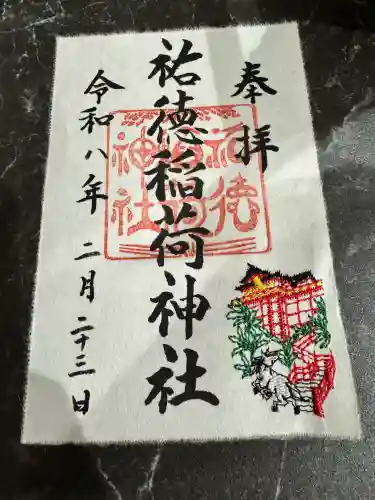 奉拝
祐徳稲荷神社
令和八年 二月二十三日
祐徳
稲荷
神社